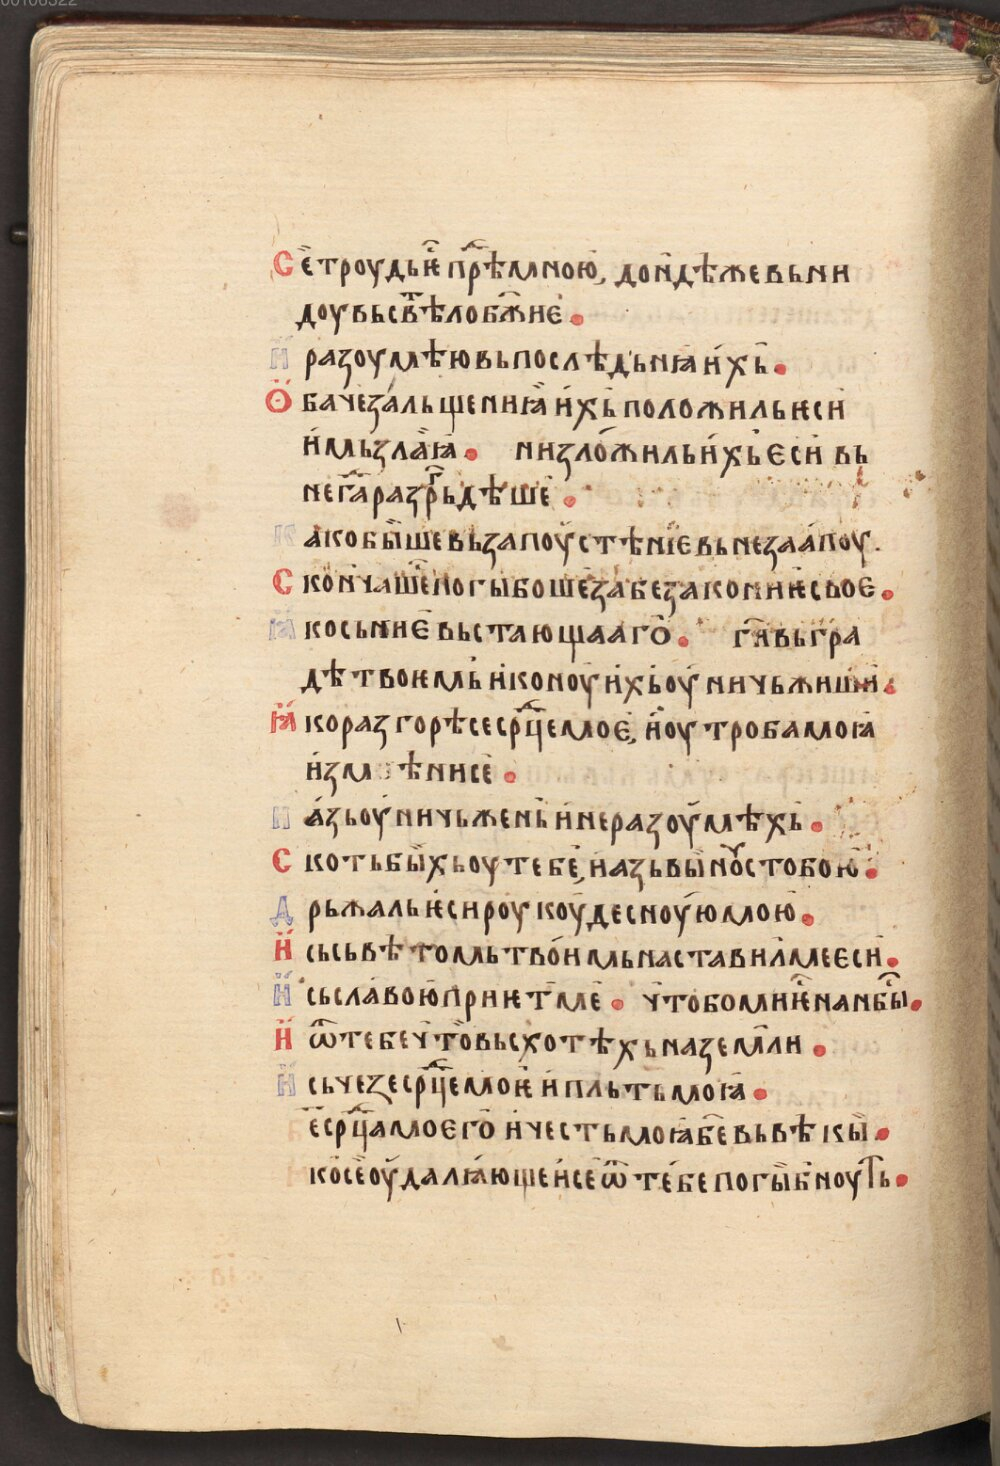 Се троудь ѥ⁠с прѣⷣ мною, доидѣже вьни
доу вь свⷮѣло бж҃ие
И разоумѣю вь послѣдьнꙗ ихь
Обаче за льщениꙗ ихь положиль ѥси
имь злаꙗ низложиль ихь еси вь
негⷣа разгрⷣьдѣше
Како быше вь запоустѣние вьнезаапоу
Скончаше погыбоше за безакониѥ свое
Ꙗко сьние вьстающааго ги҃ вь гра
дѣ твоѥмь иконоу ихь оуничьжиши
Ꙗко разгорѣ се срⷣце мое, и оутроба моꙗ
измѣни се
И азь оуничьжень и не разоумѣхь
Скоть быхь оу тебе, и азь выноу с тобою
Дрьжаль ѥси роукоу десноую мою
И сьсьвѣтомь твоимь наставил ме еси
И сь славою приѥт ме что бо ми ѥ на нб҃сы
И ѿ тебе что вьсхотѣхь на земли
Исьчезе срⷣце моѥ и пльть моꙗ
б҃е срⷣца моего и честь моꙗ б҃е вь вѣкы
ко се оудалꙗющеи се ѿ тебе погыбноуть